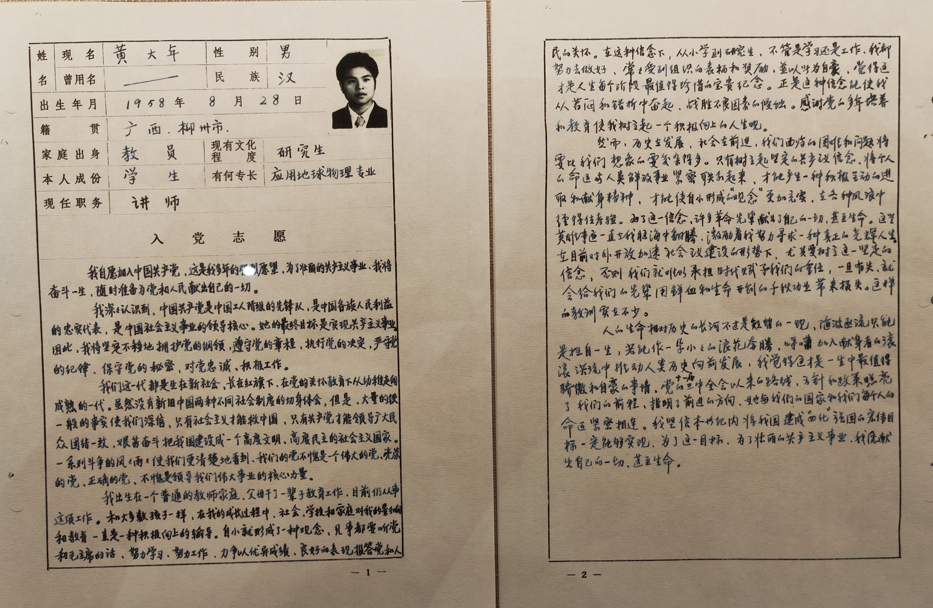 姓名 现名 黄大年 性别 男
曾用名 —— 民族 汉
出生年月 1958年8月28日
籍贯 广西.柳州市.
家庭出身 教员 现有文化程度 研究生
本人成份 学生 有何专长 应用地球物理专业
现任职务 讲师
入党志愿
我自愿加入中国共产党,这是我多年的愿望,为了壮丽的共产主义事业,我将
奋斗一生,随时准备为党和人民献出自己的一切。
我深深认识到,中国共产党是中国工人阶级的先锋队,是中国各族人民利益
的忠实代表,是中国社会主义事业的领导核心。她的最终目标是实现共产主义事业,
因此,我将坚定不移地拥护党的纲领,遵守党的章程,执行党的决定,严守党
的纪律,保守党的秘密,对党忠诚、积极工作。
我们这一代都是生在新社会,长在红旗下,在党的关怀教育下从幼稚走向
成熟的一代。虽然没有新旧中国两种不同社会制度的切身体会,但是,大量的铁
一般的事实使我们深信,只有社会主义才能救中国,只有共产党才能领导广大民
众团结一致、艰苦奋斗把我国建设成一个高度文明,高度民主的社会主义国家。
一系列斗争的风(雨)使我们更清楚地看到,我们的党不愧是一个伟大的党,光荣
的党,正确的党,不愧是领导我们伟大事业的核心力量。
我出生在一个普通的教师家庭,父母干了一辈子教育工作,目前仍从事
这项工作。和大多数孩子一样,在我的成长过程中,社会、学校和家庭对我的影响
和教育一直是一种积极向上的辅导。自小就形成了一种观念,凡事都要听党
和毛主席的话,努力学习、努力工作,力争以优异成绩、良好的表现报答党和人
— 1 —
民的关怀。在这种信念下,从小学到研究生,不管是学习还是工作,我都
努力去做好,常常受到组织的表扬和奖励,并以此为自豪,觉得这
才是人生每个阶段最值得珍惜的宝贵纪念。正是这种信念促使我
从苦闷和错折中奋起,战胜了困难的。感谢党的多年培养
和教育使我树立起一个积极向上的人生观。
然而,历史在发展,社会在前进,我们面临的困难和问题将
要比我们想象的要复杂得多。只有树立起坚定的共产主义信念,将个人
的命运与人类解放事业紧密联系起来,才能产生一种积极主动的进
取和献身精神,才能使自小形成的“观念”更加充实,在各种风浪中
经得住考验。为了这一信念,许多革命先辈献出了自己的一切,甚至生命。这些
英雄事迹一直在我脑海中翻腾,激励着我努力寻求一种真正的光辉人生。
在目前对外开放加速社会主义建设的形势下,尤其要树立这一坚定的
信念,否则我们就难以承担时代赋予我们的责任,一旦丧失,就
会给我们的先辈用鲜血和生命开创的千秋功业带来损失。这样
的教训实在不少。
人的生命相对历史的长河不过是短暂的一现,随波逐流只能
是枉自一生,若能作一朵小小的浪花奔腾,呼啸加入献身者的滚
滚洪流中推动人类历史向前发展,我觉得这才是一生中最值得
骄傲和自豪的事情。党的十一届三中全会以来的路线、方针和政策照亮
了我们的前程,指明了前进的方向,她与我们的国家和我们每个人的
命运紧密相连。我坚信本世纪内将我国建成四化强国的宏伟目
标一定能够实现,为了这一目标,为了壮丽的共产主义事业,我愿献
出自己的一切,甚至生命。
— 2 —